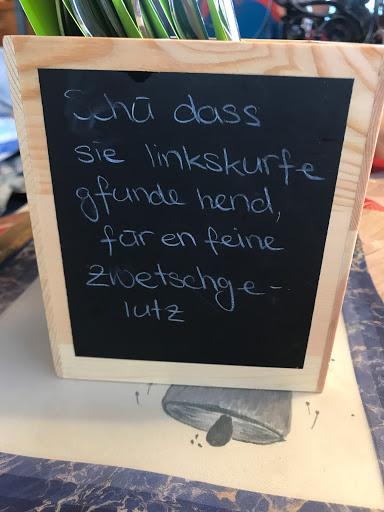 Schü dass
sie linkskurfe
gfunde hend,
für en feine
zwetschge-
lutz